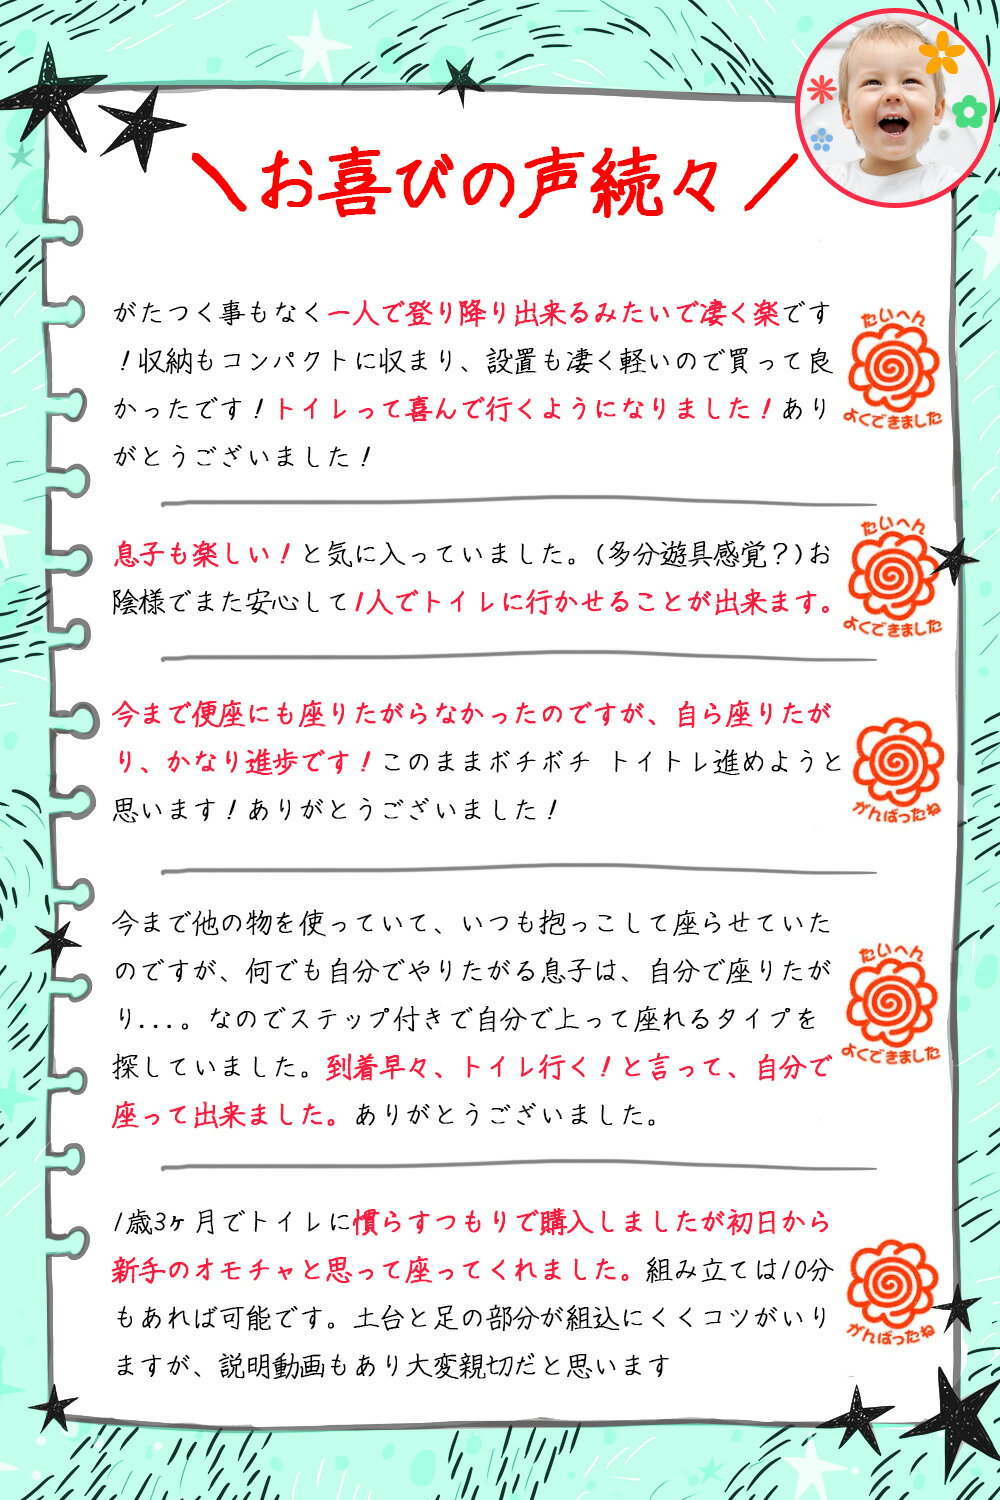 ＼お喜びの声続々／
がたつく事もなく一人で登り降り出来るみたいで凄く楽です
！収納もコンパクトに収まり、設置も凄く軽いので買って良
かったです！トイレって喜んで行くようになりました！あり
がとうございました！
たいへん
よくできました
息子も楽しい！と気に入っていました。(多分遊具感覚？)お
陰様でまた安心して1人でトイレに行かせることが出来ます。
たいへん
よくできました
今まで便座にも座りたがらなかったのですが、自ら座りたが
り、かなり進歩です！このままボチボチ トイトレ進めようと
思います！ありがとうございました！
がんばったね
今まで他の物を使っていて、いつも抱っこして座らせていた
のですが、何でも自分でやりたがる息子は、自分で座りたが
り...。なのでステップ付きで自分で上って座れるタイプを
探していました。到着早々、トイレ行く！と言って、自分で
座って出来ました。ありがとうございました。
たいへん
よくできました
1歳3ヶ月でトイレに慣らすつもりで購入しましたが初日から
新手のオモチャと思って座ってくれました。組み立ては10分
もあれば可能です。土台と足の部分が組込にくくコツがいり
ますが、説明動画もあり大変親切だと思います
がんばったね